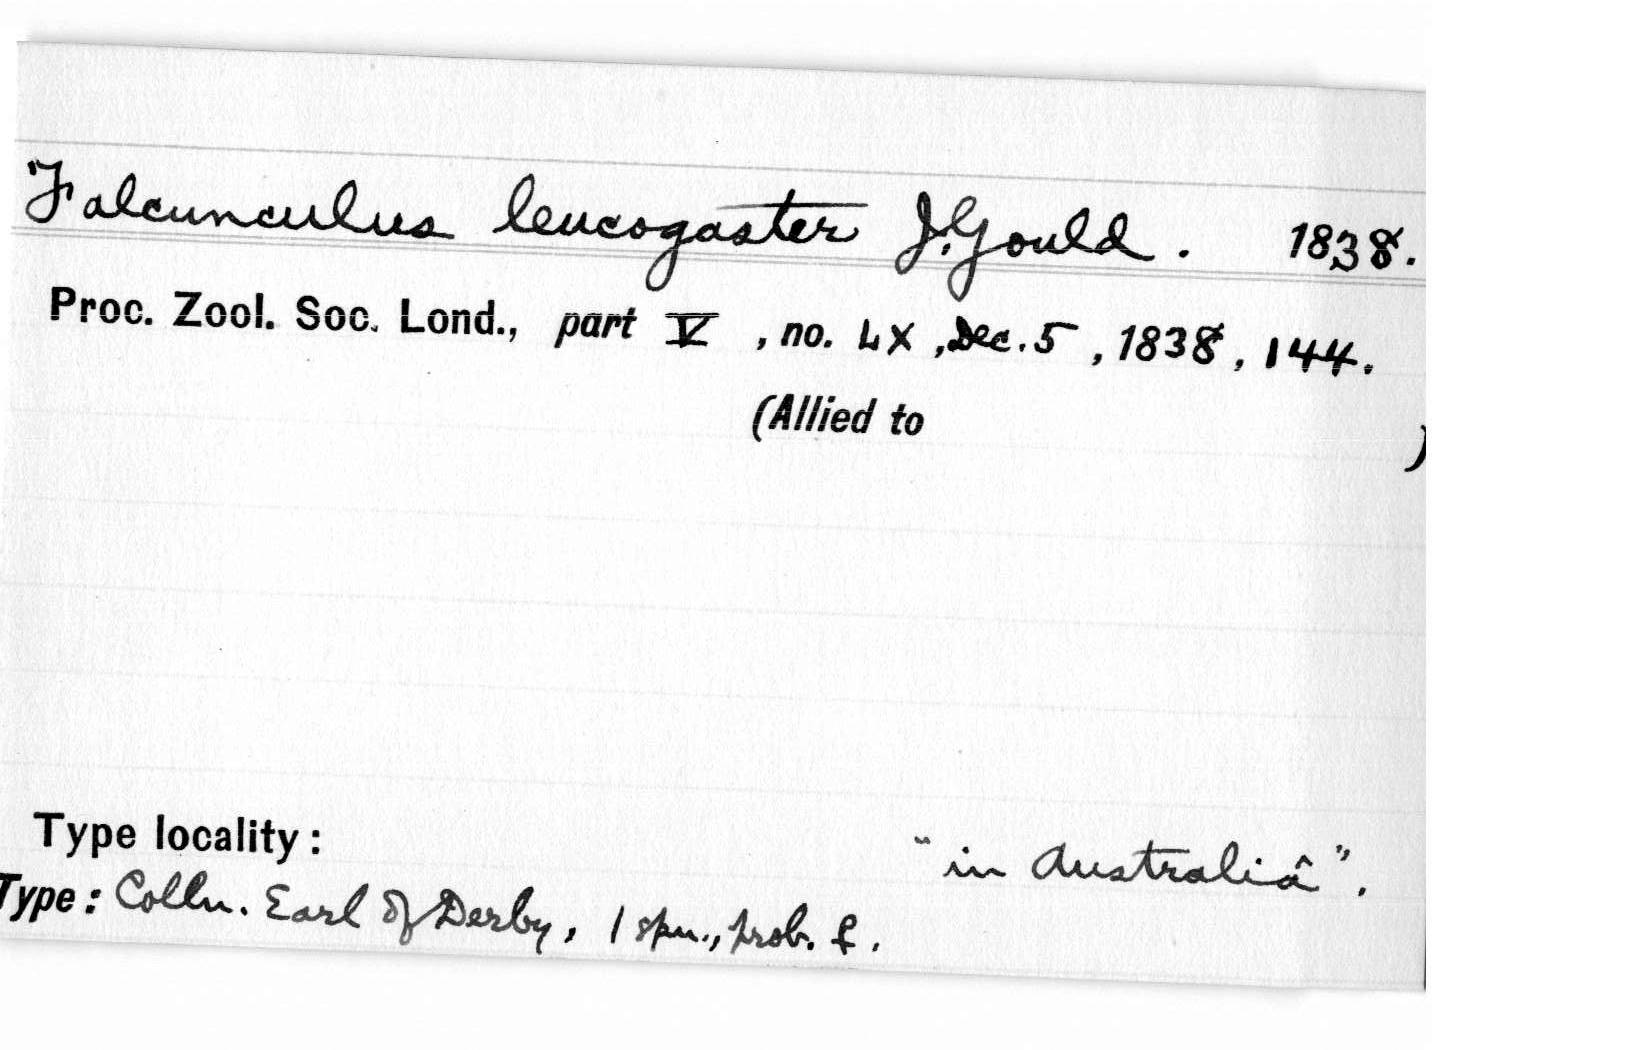 Falcunculus leucogaster J. Gould. 1838.
Proc. Zool. Soc. Lond., part V, no. LX, Dec. 5, 1838, 144.
(Allied to )
Type locality: "in Australiâ".
Type: Colln. Earl of Derby, 1 spm., prob. f.